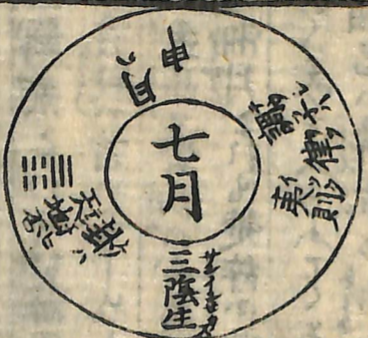 七月
申月ハ
調子ハ
律
夷則
三陰生
卦ハ
天地否